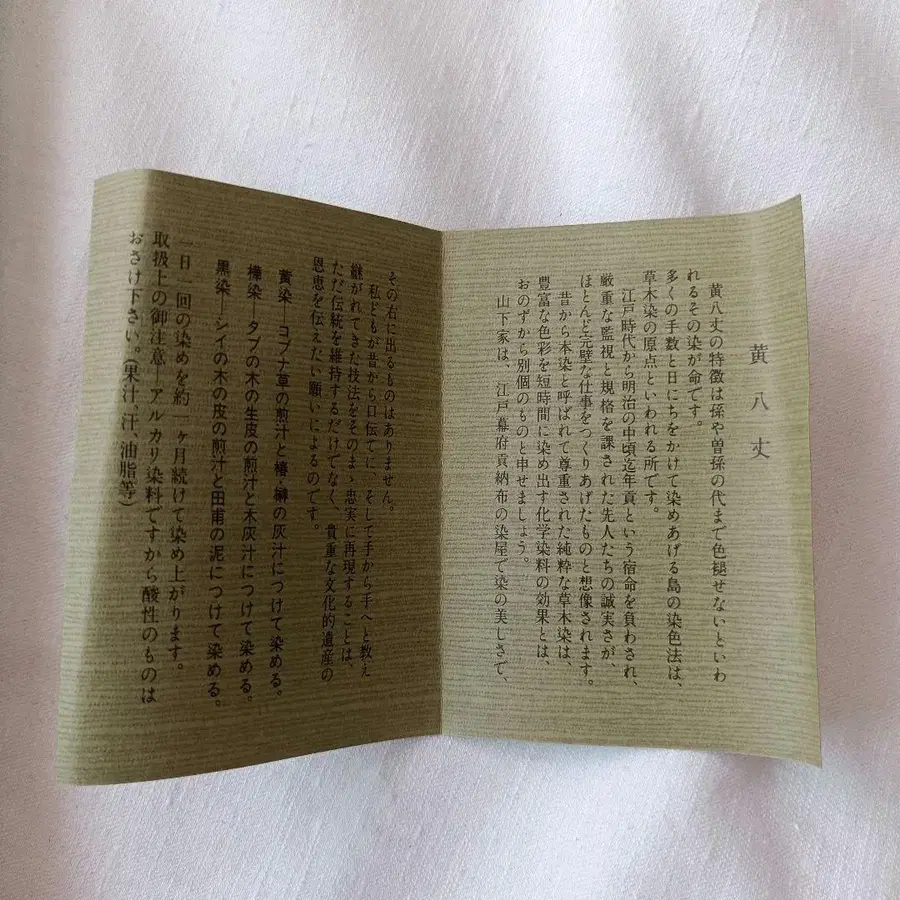 黄八丈
黄八丈の特徴は孫や曽孫の代まで色褪せないといわ
れるその染が命です。
多くの手数と日にちをかけて染めあげる島の染色法は、
草木染の原点といわれる所です。
江戸時代から明治の中頃迄年貢という宿命を負わされ、
厳重な監視と規格を課された先人たちの誠実さが、
ほとんど完璧な仕事をつくりあげたものと想像されます。
昔から本染と呼ばれて尊重された純粋な草木染は、
豊富な色彩を短時間に染め出す化学染料の効果とは、
おのずから別個のものと申せましょう。
山下家は、江戸幕府貢納布の染屋で染の美しさで、
その右に出るものはありません。
私どもが昔から口伝てに、そして手から手へと教え
継がれてきた技法をそのまゝ忠実に再現することは、
ただ伝統を維持するだけでなく、貴重な文化的遺産の
恩恵を伝えたい願いによるのです。
黄染―コブナ草の煎汁と椿・榊の灰汁につけて染める。
樺染―タブの木の生皮の煎汁と木灰汁につけて染める。
黒染―シイの木の皮の煎汁と田甫の泥につけて染める。
一日一回の染めを約一ヶ月続けて染め上がります。
取扱上の御注意―アルカリ染料ですから酸性のものは
おさけ下さい。(果汁、汗、油脂等)